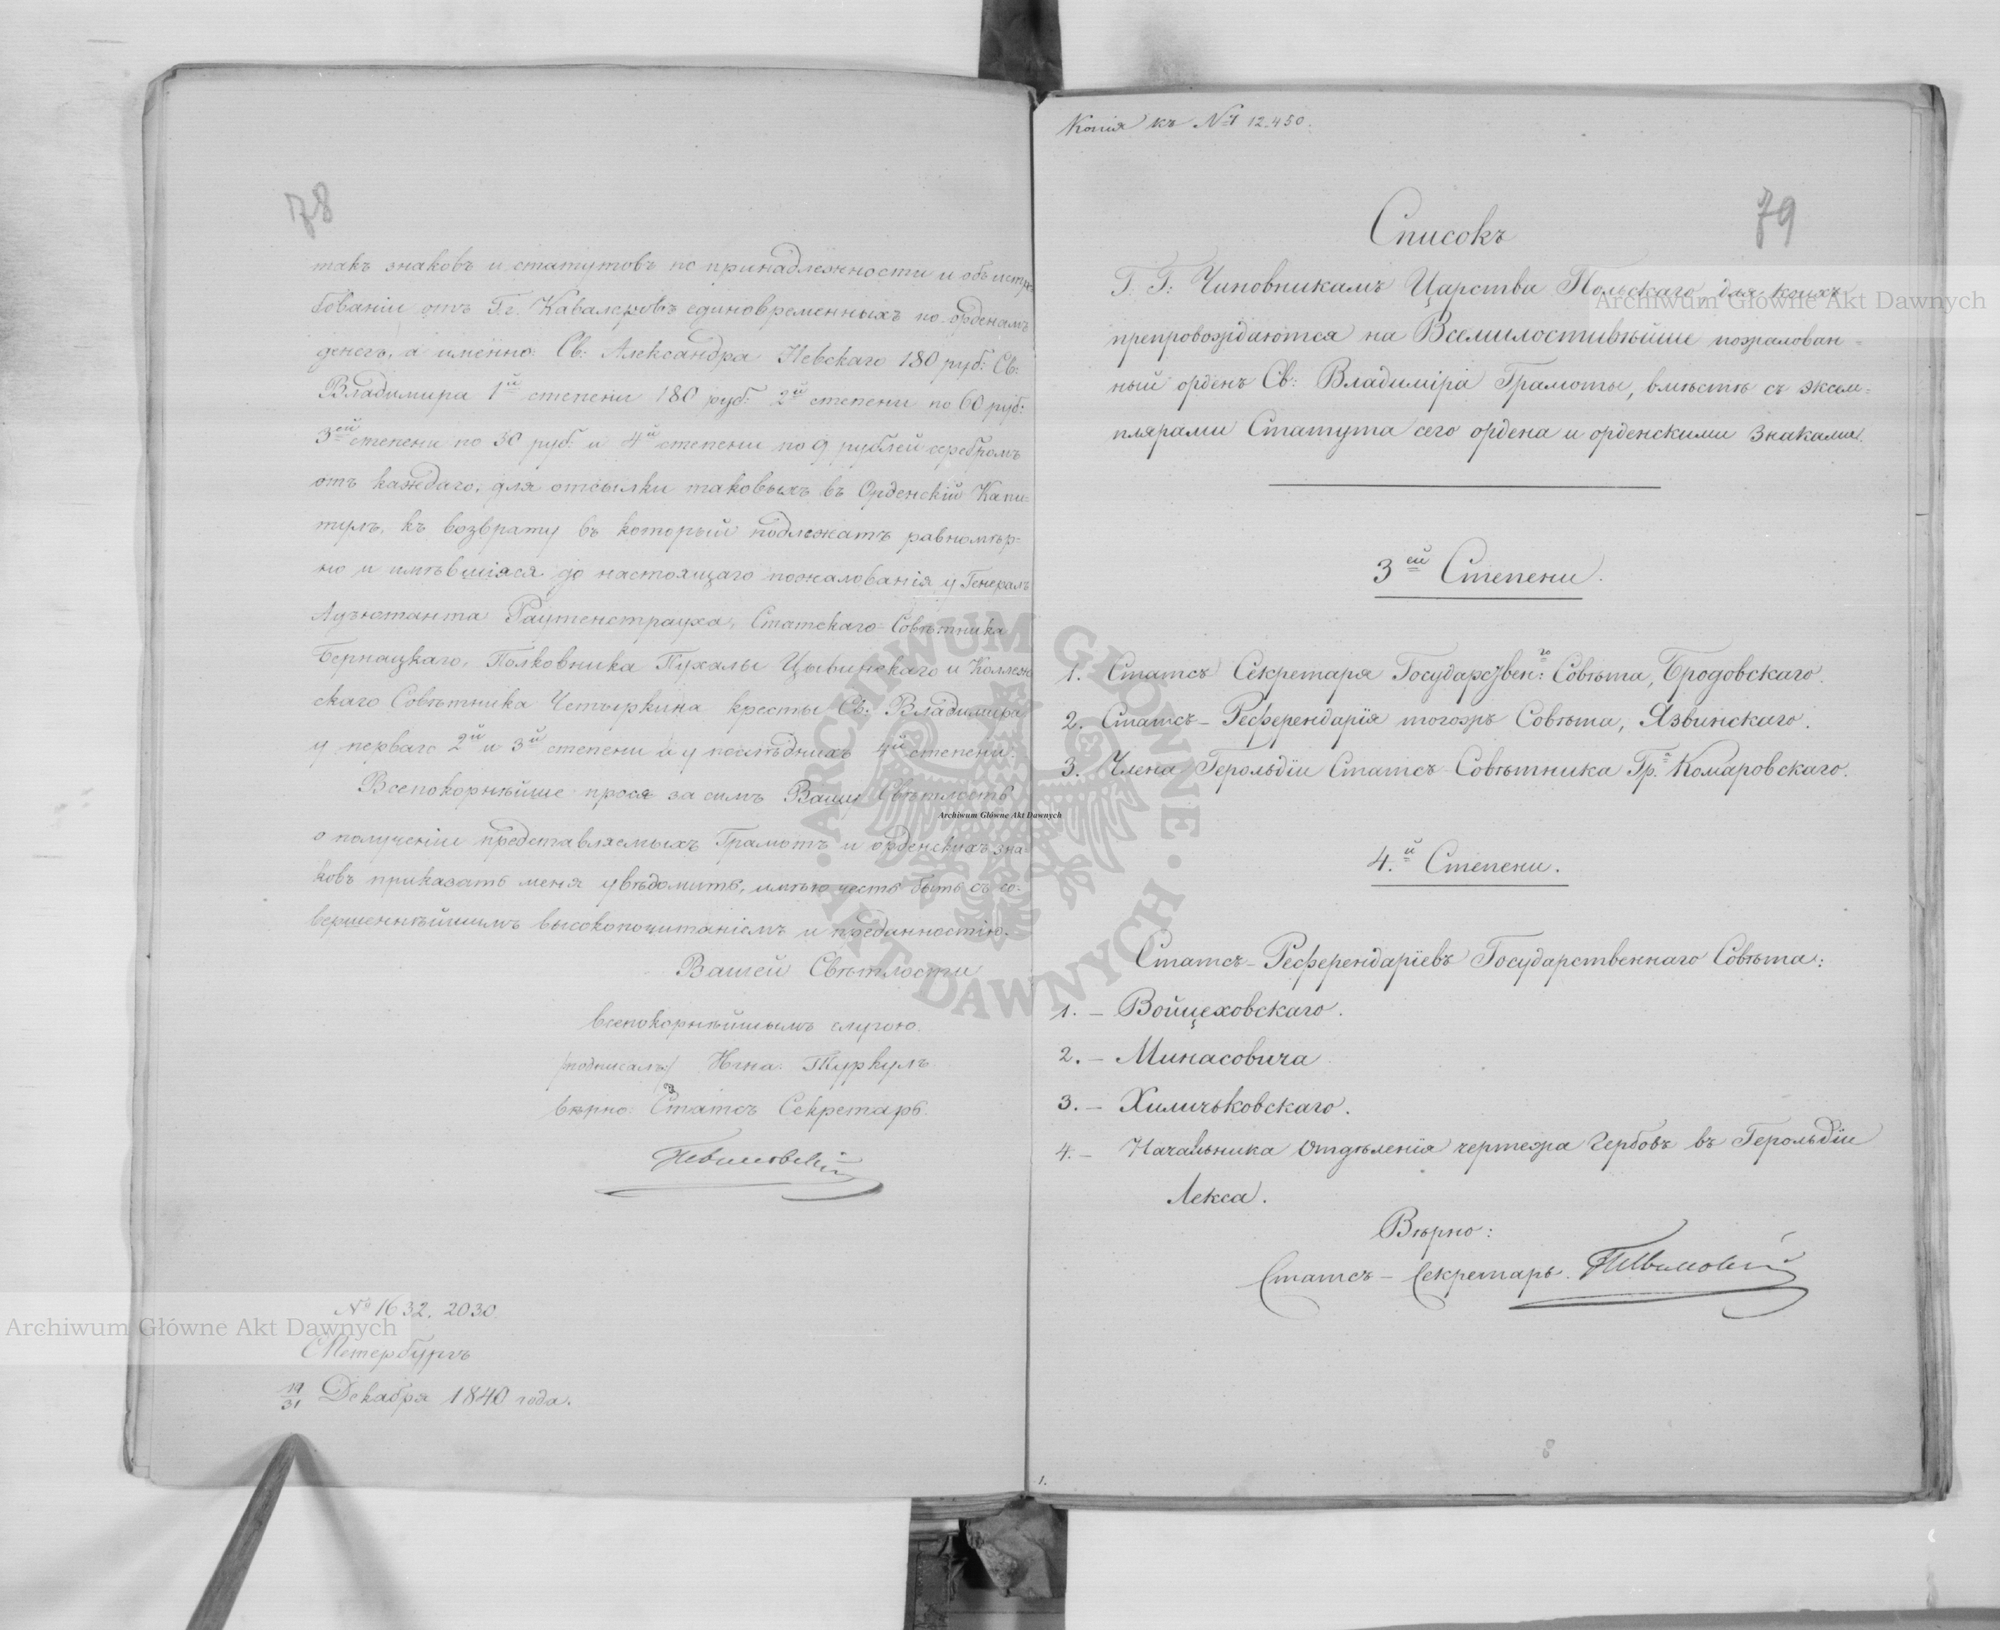 78
такъ знаковъ и статутовъ по принадлежности и объ истре-
бованіи отъ Гг. Кавалеровъ единовременныхъ по орденамъ
денегъ, а именно: Св: Александра Невскаго 180 руб: Св:
Владимира 1й степени 180 руб: 2й степени по 60 руб:
3ей степени по 30 руб: и 4й степени по 9 рублей серебромъ
отъ каждаго, для отсылки таковыхъ въ Орденскій Капи-
тулъ, къ возврату въ который подлежатъ равномѣр-
но и имѣвшіяся до настоящаго пожалованія у Генералъ
Адъютанта Раутенстрауха, Статскаго Совѣтника
Бернацкаго, Полковника Пухалы Цывинскаго и Коллеж-
скаго Совѣтника Четыркина кресты Св: Владимира
у перваго 2й и 3й степени а у послѣднихъ 4й степени.
Всепокорнѣйше прося за симъ Вашу Свѣтлость
о полученіи представляемыхъ Грамотъ и орденскихъ зна-
ковъ приказать меня увѣдомить, имѣю честь быть съ со-
вершеннѣйшимъ высокопочитаніемъ и преданностію
Вашей Свѣтлости
всепокорнѣйшимъ слугою.
/подписалъ/ Игна. Туркулъ
вѣрно: Статсъ Секретарь
№ 1632. 2030
СПетербургъ
19/31 Декабря 1840 года.
Копія къ № 12.450.
79
Списокъ
Г. Г: Чиновникамъ Царства Польскаго, для коихъ
препровождаются на Всемилостивѣйше пожалован-
ный орденъ Св: Владиміра Грамоты, вмѣстѣ съ экзем-
плярами Статута сего ордена и орденскими знаками.
3ей Степени.
1. Статсъ Секретаря Государствен:го Совѣта, Бродовскаго.
2. Статсъ-Референдарія тогожъ Совѣта, Язвинскаго.
3. Члена Герольдіи Статсъ Совѣтника Гр.а Комаровскаго.
4.й Степени.
Статсъ-Референдаріевъ Государственнаго Совѣта:
1. – Войцеховскаго.
2. – Минасовича
3. – Хиличьковскаго.
4. – Начальника Отдѣленія чертежа Гербовъ въ Герольдіи
Лекса.
Вѣрно:
Статсъ-Секретарь.
8
1.
Archiwum Główne Akt Dawnych
Archiwum Główne Akt Dawnych
Archiwum Główne Akt Dawnych
ARCHIWUM GŁÓWNE · AKT DAWNYCH ·